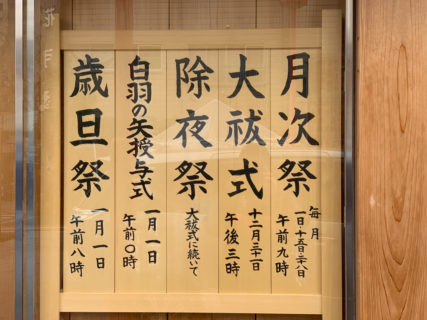 月次祭
毎月
一日十五日二十八日
午前九時
大祓式
十二月三十一日
午後三時
除夜祭
大祓式に続いて
白羽の矢授与式
一月一日
午前〇時
歳旦祭
一月一日
午前八時